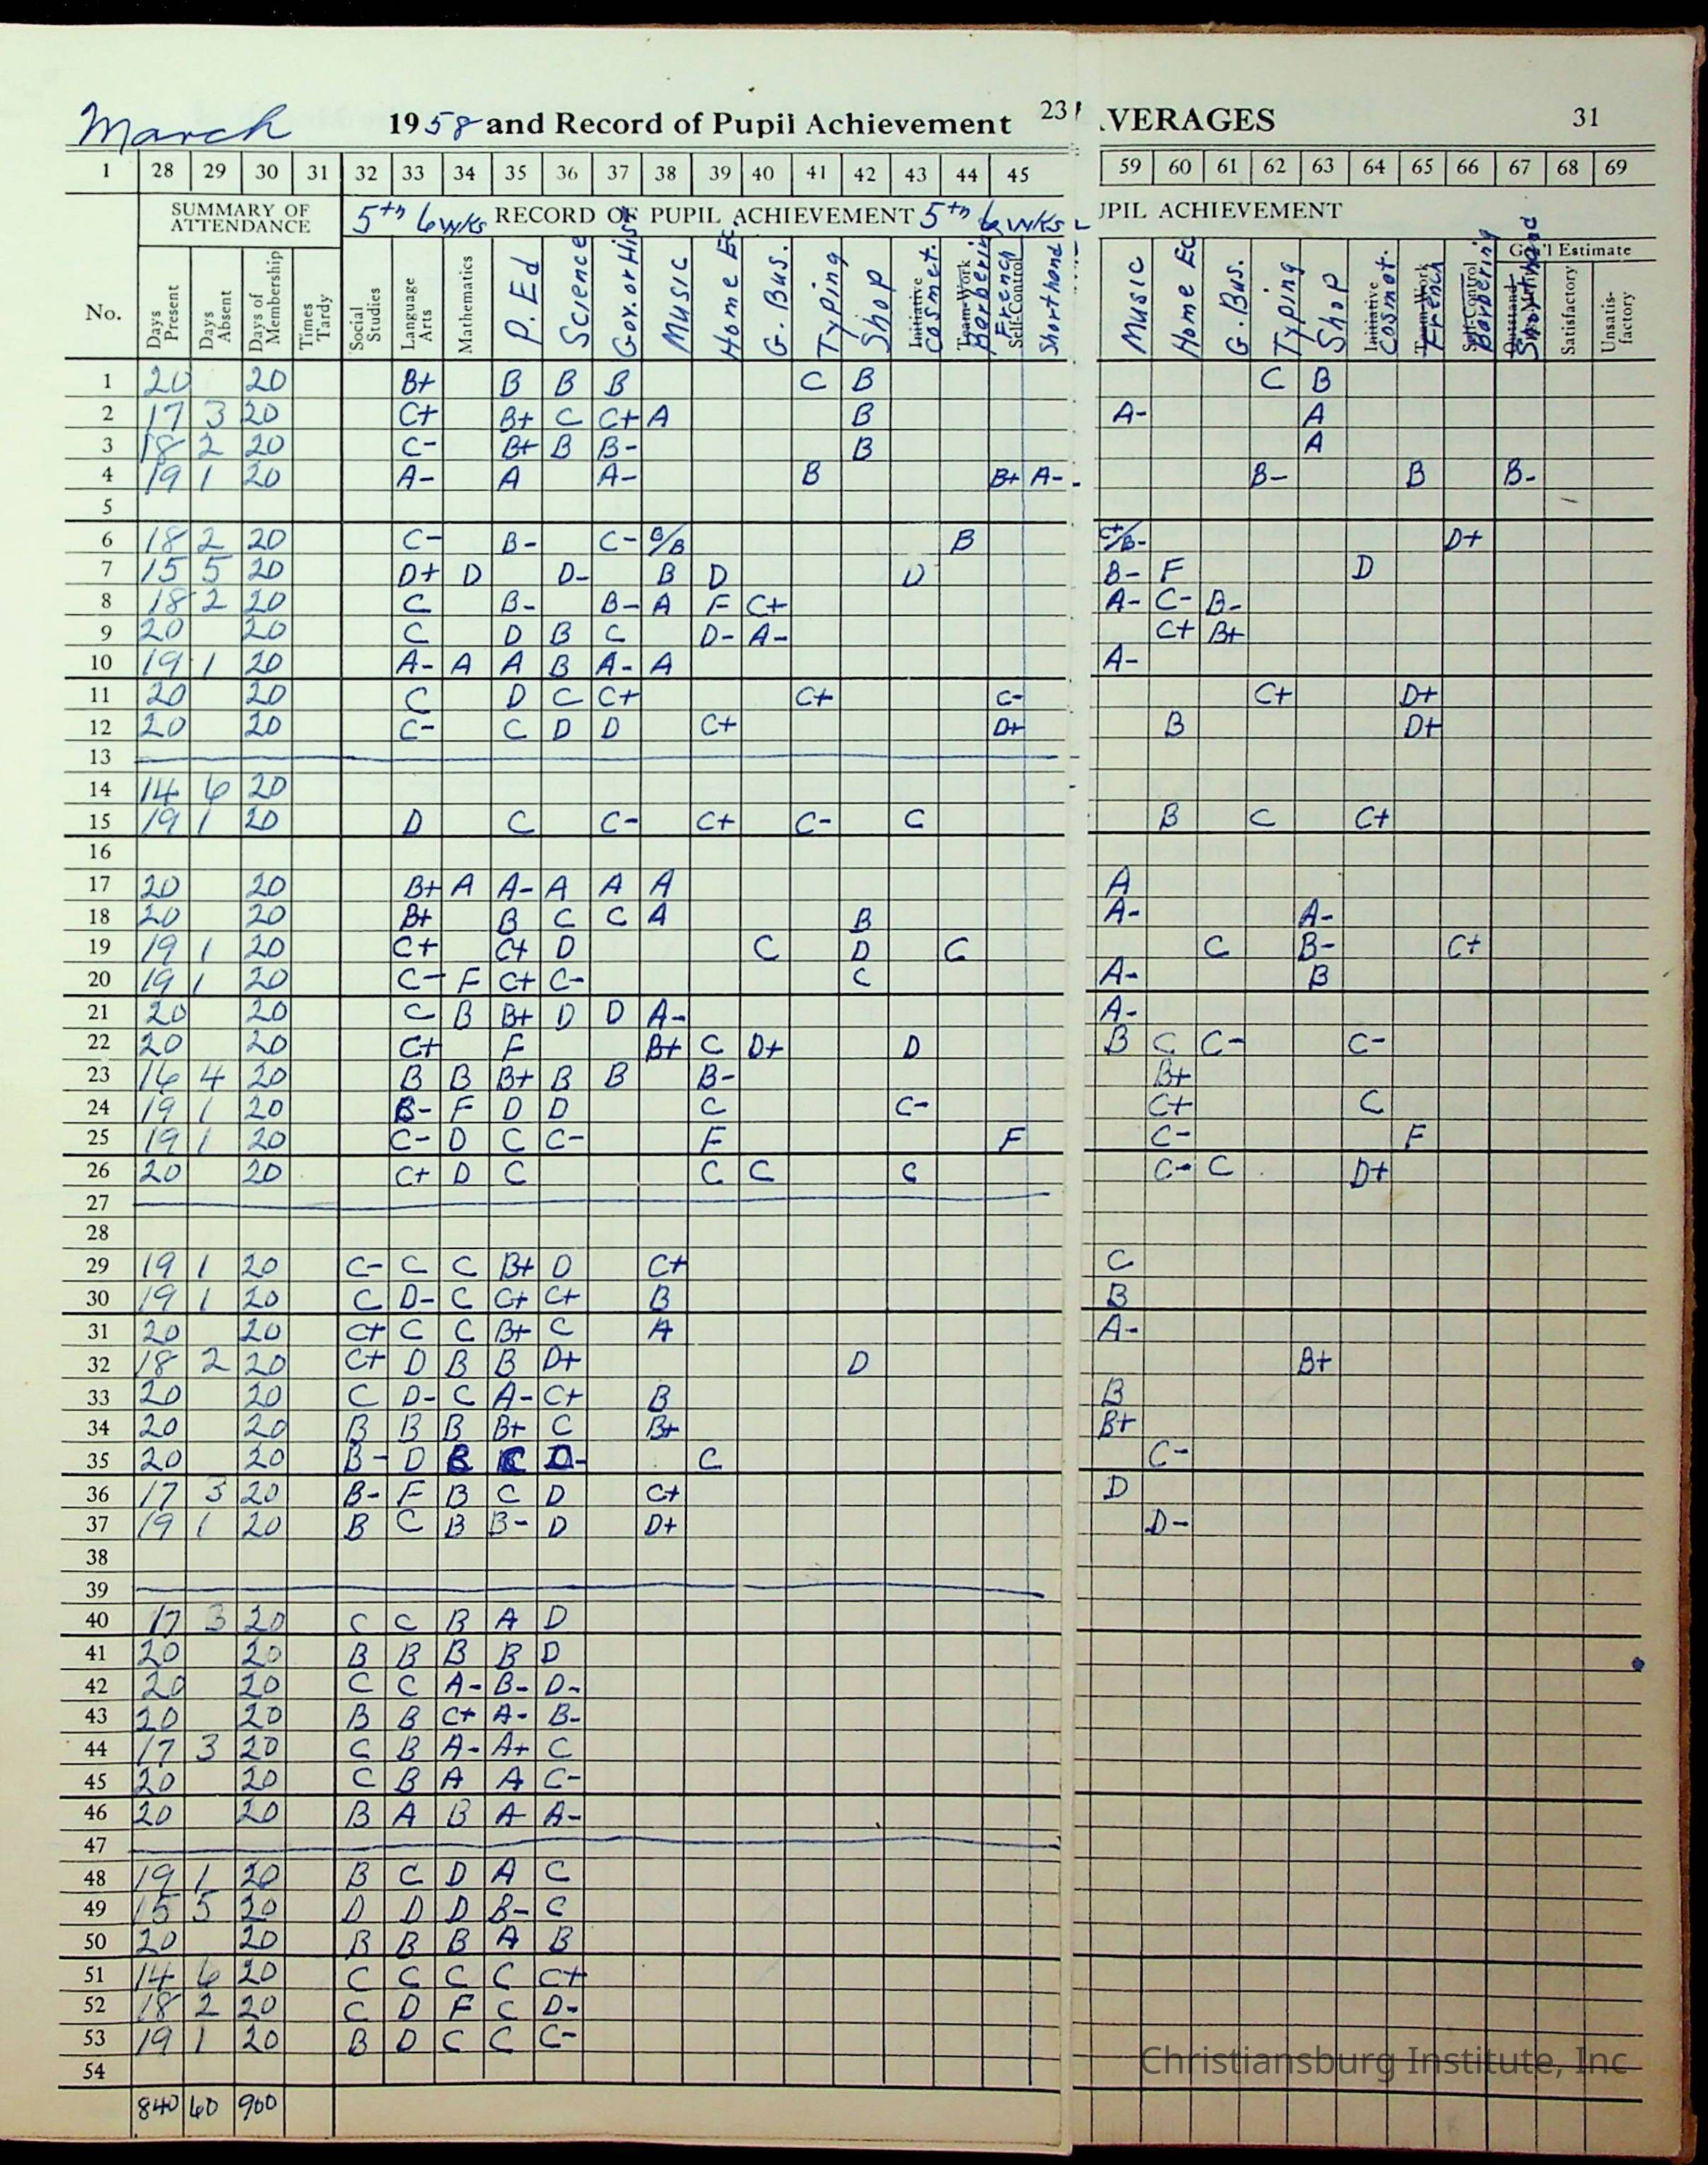 March 1958 and Record of Pupil Achievement 23 AVERAGES 31
1 28 29 30 31 32 33 34 35 36 37 38 39 40 41 42 43 44 45 59 60 61 62 63 64 65 66 67 68 69
SUMMARY OF ATTENDANCE 5th 6 wks RECORD OF PUPIL ACHIEVEMENT 5th 6 wks UPIL ACHIEVEMENT
Gen'l Estimate
No. Days Present Days Absent Days of Membership Times Tardy Social Studies Language Arts Mathematics P. Ed Science Gov. or Hist Music Home Ec. G. Bus. Typing Shop Initiative Cosmet. Team-Work Barbering French Self-Control Shorthand Music Home Ec G. Bus. Typing Shop Initiative Cosmet. Team-Work French Self-Control Barbering Shorthand Satisfactory Unsatis-factory
1 20 20 B+ B B B C B C B
2 17 3 20 C+ B+ C C+ A B A- A
3 18 2 20 C- B+ B B- B A
4 19 1 20 A- A A- B B+ A- B- B B-
5
6 18 2 20 C- B- C- B/B B C+/B- D+
7 15 5 20 D+ D D- B D D B- F D
8 18 2 20 C B- B- A F C+ A- C- B-
9 20 20 C D B C D- A- C+ B+
10 19 1 20 A- A A B A- A A-
11 20 20 C D C C+ C+ C- C+ D+
12 20 20 C- C D D C+ D+ B D+
13
14 14 6 20
15 19 1 20 D C C- C+ C- C B C C+
16
17 20 20 B+ A A- A A A A
18 20 20 B+ B C C A B A- A-
19 19 1 20 C+ C+ D C D C C B- C+
20 19 1 20 C- F C+ C- C A- B
21 20 20 C B B+ D D A- A-
22 20 20 C+ F B+ C D+ D B C C- C-
23 16 4 20 B B B+ B B B- B+
24 19 1 20 B- F D D C C- C+ C
25 19 1 20 C- D C C- F F C- F
26 20 20 C+ D C C C C C- C D+
27
28
29 19 1 20 C- C C B+ D C+ C
30 19 1 20 C D- C C+ C+ B B
31 20 20 C+ C C B+ C A A-
32 18 2 20 C+ D B B D+ D B+
33 20 20 C D- C A- C+ B B
34 20 20 B B B B+ C B+ B+
35 20 20 B- D B C D- C C-
36 17 3 20 B- F B C D C+ D
37 19 1 20 B C B B- D D+ D-
38
39
40 17 3 20 C C B A D
41 20 20 B B B B D
42 20 20 C C A- B- D-
43 20 20 B B C+ A- B-
44 17 3 20 C B A- A+ C
45 20 20 C B A A C-
46 20 20 B A B A A-
47
48 19 1 20 B C D A C
49 15 5 20 D D D B- C
50 20 20 B B B A B
51 14 6 20 C C C C C+
52 18 2 20 C D F C D-
53 19 1 20 B D C C C-
54
840 60 900
Christiansburg Institute, Inc